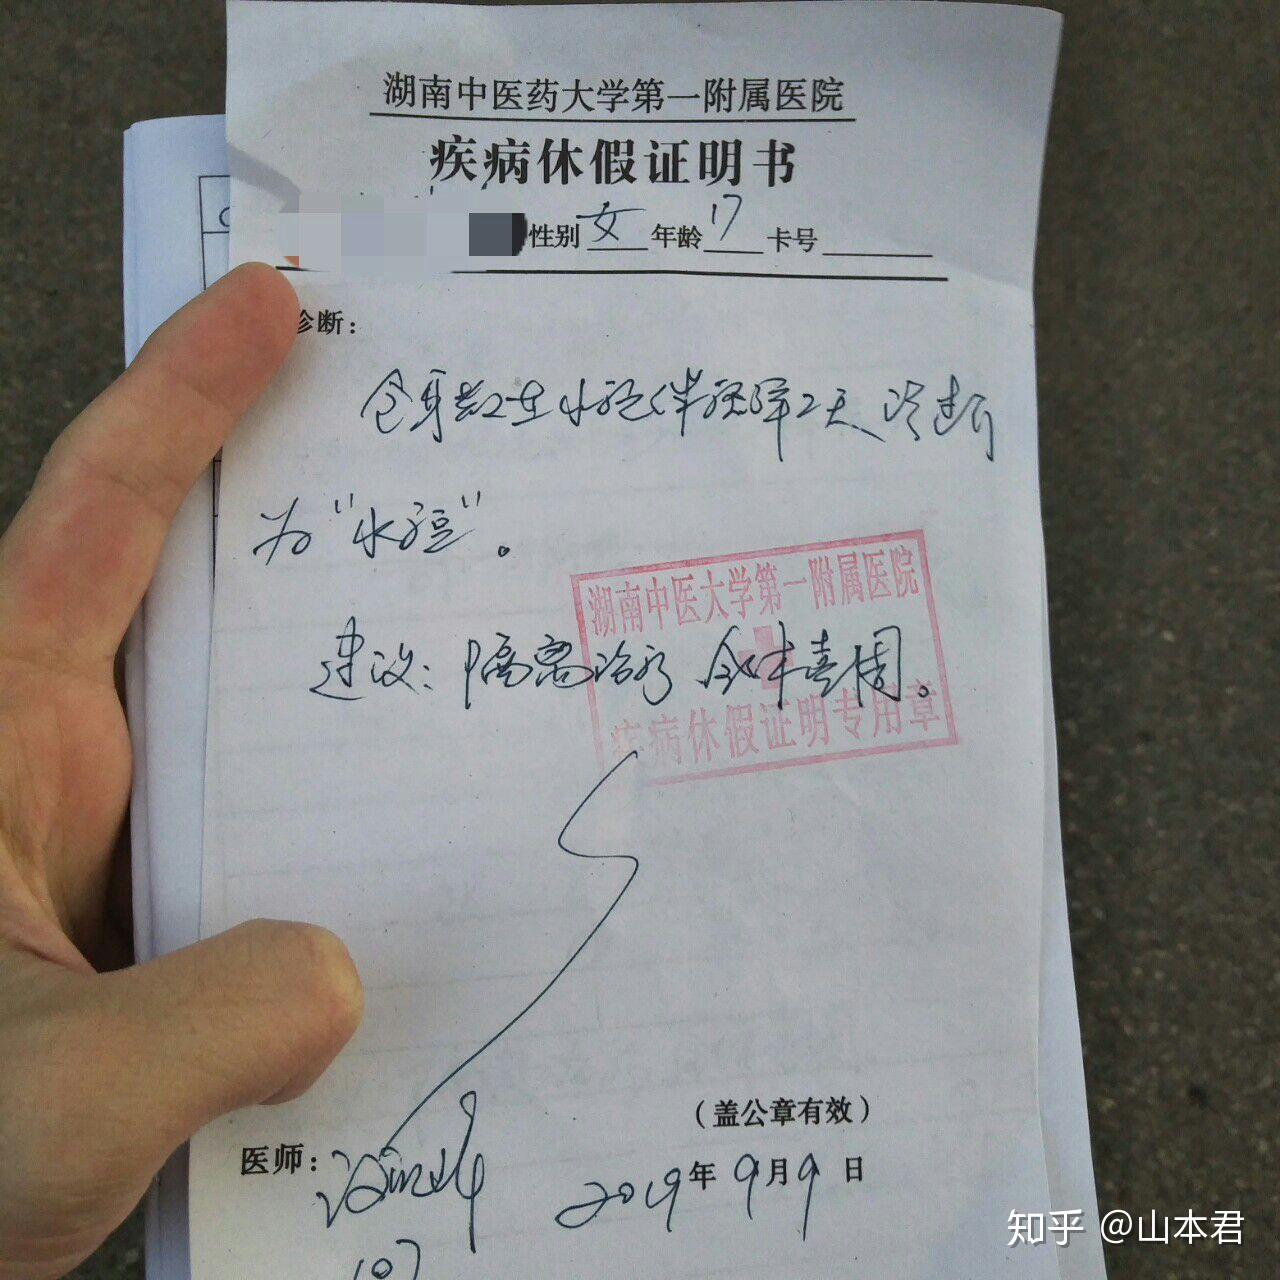 湖南中医药大学第一附属医院
疾病休假证明书
性别 女 年龄 17 卡号
诊断：
全身散在水疱伴瘙痒2天 诊断
为"水痘"。
建议：隔离治疗 全休壹周。
湖南中医大学第一附属医院
疾病休假证明专用章
（盖公章有效）
医师：
2019年9月9日
107
知乎 @山本君